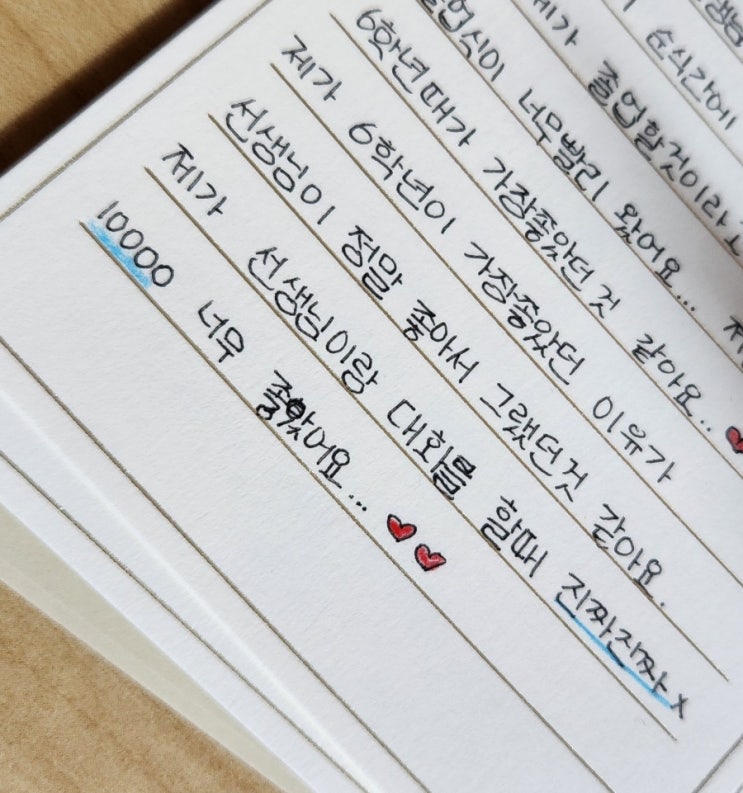 순식간에
제가 졸업할것이라고
졸업식이 너무빨리 왔어요...
6학년때가 가장좋았던 것 같아요..♥
제가 6학년이 가장좋았던 이유가
선생님이 정말 좋아서 그랬던것 같아요.
제가 선생님이랑 대화를 할때 진짜진짜x
10000 너무 좋았어요...♥♥